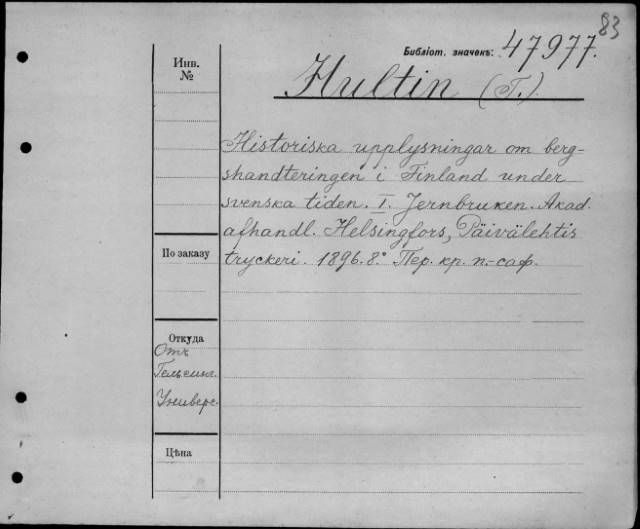 83
Библіот. значекъ: 47977.
Инв.
№
Hultin (T.)
Historiska upplysningar om berg-
shandteringen i Finland under
svenska tiden. I. Jernbruken. Akad.
afhandl. Helsingfors, Päivälehtis
tryckeri. 1896. 8.° Пер. кр. п.-саф.
По заказу
Откуда
Отъ
Гельсинг.
Универс.
Цѣна